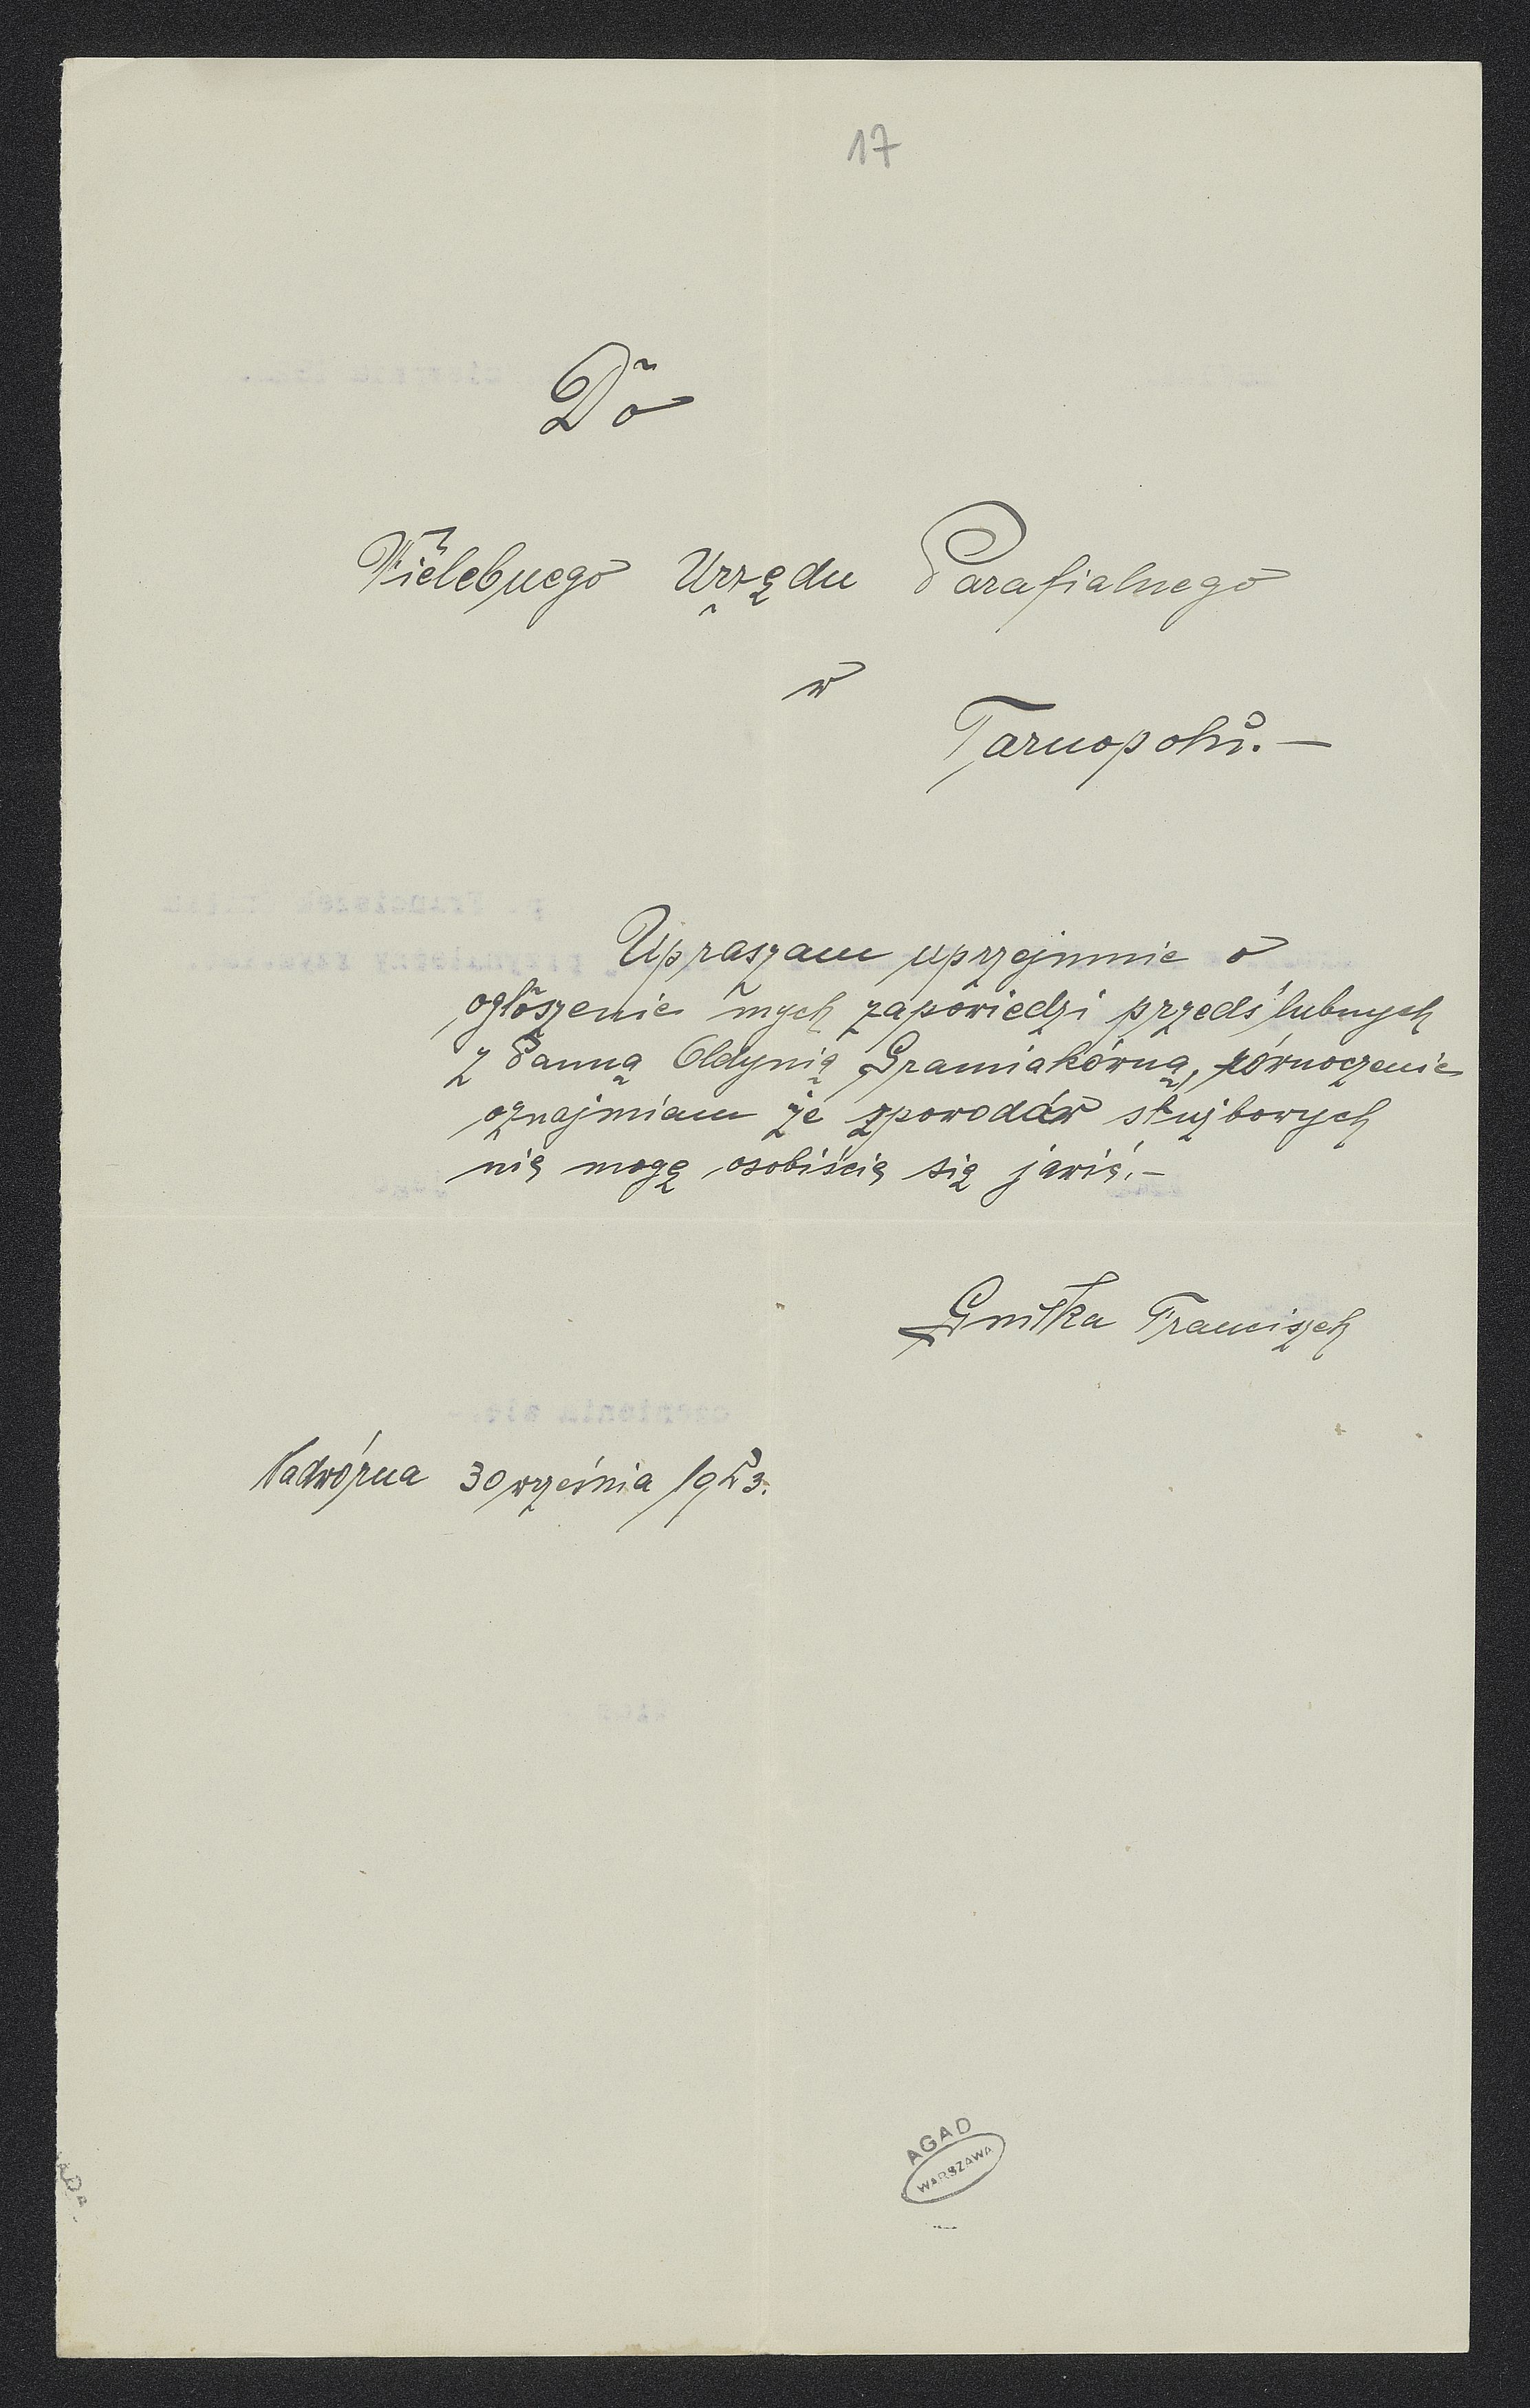 17
Do
Wielebnego Urzędu Parafialnego
w
Tarnopolu.—
Upraszam uprzejmie o
ogłoszenie mych zapowiedzi przedślubnych
z Panną Oldynią Graniakówną, równoczenie
oznajmiam że zpowodów służbowych
nie mogę osobiście się jawić.—
Gnitka Franciszek
Nadwórna 30 września 1923.
AGAD
WARSZAWA